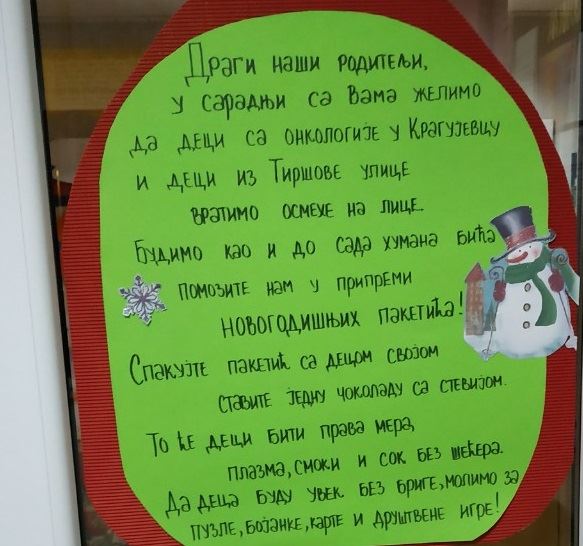 Драги наши родитељи,
у сарадњи са Вама желимо
да деци са онкологије у Крагујевцу
и деци из Тиршове улице
вратимо осмехе на лице.
Будимо као и до сада хумана бића
помозите нам у припреми
новогодишњих пакетића!
Спакујте пакетић са децом својом
ставите једну чоколаду са стевијом.
То ће деци бити права мера,
плазма, смоки и сок без шећера.
Да деца буду увек без бриге, молимо за
пузле, бојанке, карте и друштвене игре!